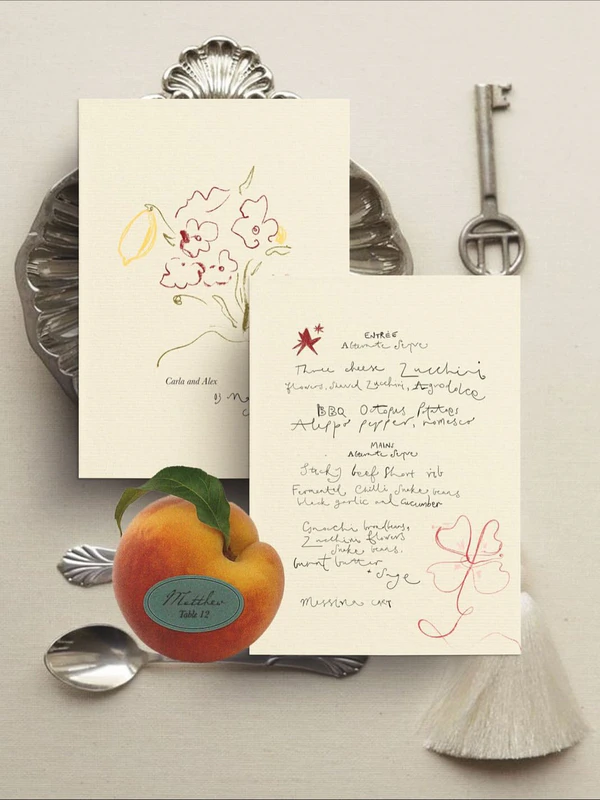 Carla and Alex
03
ENTRÉE
Alternate Serve
Three cheese Zucchini
flowers, Zucchini, Agrodolce
BBQ Octopus Potatoes
Aleppo pepper, romesco
MAINS
Alternate Serve
Sticky beef Short rib
Fermented Chilli Snake beans
black garlic and cucumber
Gnocchi broadbeans,
Zucchini flowers
Snake beans.
burnt butter
+ Sage
Messina
Matthew
Table 12